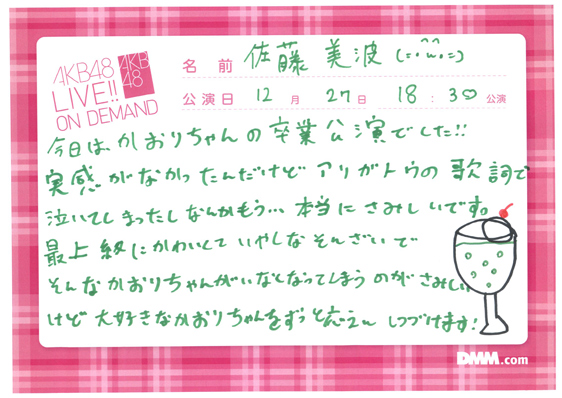 AKB48
LIVE!!
ON DEMAND
AKB
48
名 前 佐藤 美波 (=・ω・=)
公演日 12 月 27 日 18 : 30 公演
今日は、かおりちゃんの卒業公演でした!!
実感がなかったんだけど アリガトウの歌詞で
泣いてしまったしなんかもう… 本当に さみしいです。
最上級にかわいくて いやしなそんざいで
そんなかおりちゃんがいなくなってしまうのがさみしい
けど 大好きなかおりちゃんをずっと応えんしつづけます!
DMM.com